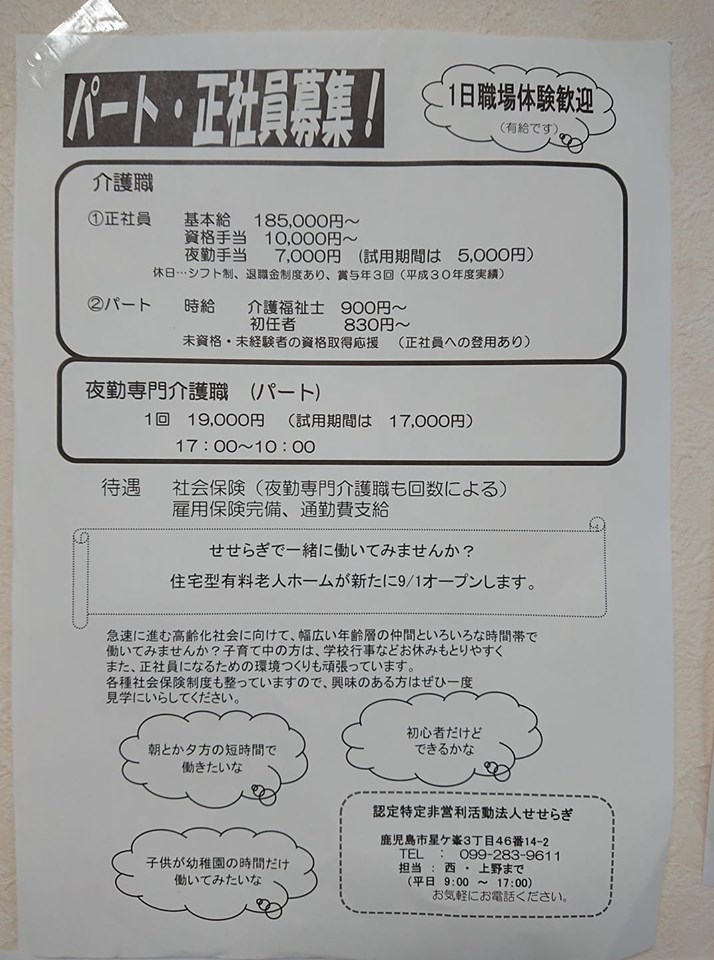 パート・正社員募集！
1日職場体験歓迎
（有給です）
介護職
①正社員　基本給　185,000円～
資格手当　10,000円～
夜勤手当　7,000円　（試用期間は　5,000円）
休日…シフト制、退職金制度あり、賞与年3回（平成30年度実績）
②パート　時給　介護福祉士　900円～
初任者　830円～
未資格・未経験者の資格取得応援　（正社員への登用あり）
夜勤専門介護職　（パート）
1回　19,000円　（試用期間は　17,000円）
17：00～10：00
待遇　社会保険（夜勤専門介護職も回数による）
雇用保険完備、通勤費支給
せせらぎで一緒に働いてみませんか？
住宅型有料老人ホームが新たに9/1オープンします。
急速に進む高齢化社会に向けて、幅広い年齢層の仲間といろいろな時間帯で
働いてみませんか？子育て中の方は、学校行事などお休みもとりやすく
また、正社員になるための環境つくりも頑張っています。
各種社会保険制度も整っていますので、興味のある方はぜひ一度
見学にいらしてください。
朝とか夕方の短時間で
働きたいな
初心者だけど
できるかな
子供が幼稚園の時間だけ
働いてみたいな
認定特定非営利活動法人せせらぎ
鹿児島市星ケ峯3丁目46番14-2
TEL　：　099-283-9611
担当　：　西　・　上野まで
（平日　9:00　～　17:00）
お気軽にお電話ください。